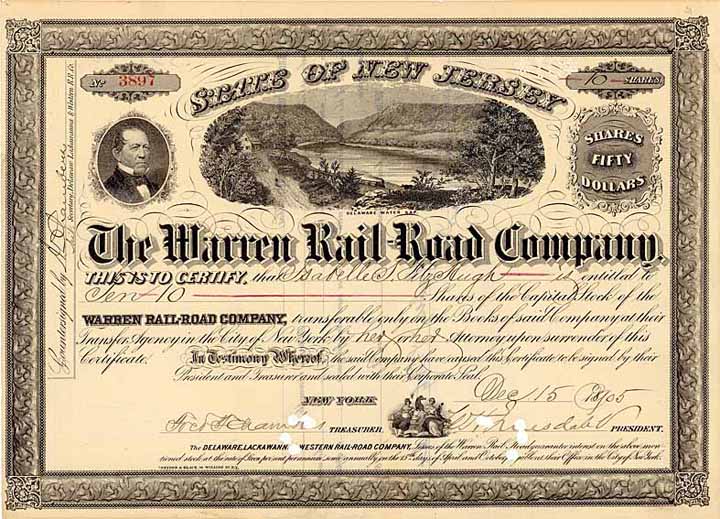 No. 3897
10 SHARES
STATE OF NEW JERSEY
SHARES
FIFTY
DOLLARS
DELAWARE WATER GAP
Countersigned by
Secretary Delaware Lackawanna & Western R.R. Co.
The Warren Rail-Road Company.
THIS IS TO CERTIFY, that Isabelle S. Fitz Hugh is entitled to
Ten 10 Shares of the Capital Stock of the
WARREN RAIL-ROAD COMPANY, transferable only on the Books of said Company at their
Transfer Agency in the City of New York by her or her Attorney upon surrender of this
Certificate. In Testimony Whereof, the said Company have caused this Certificate to be signed by their
President and Treasurer and sealed with their Corporate Seal.
NEW YORK Dec 15 1905
Fred F Chambers TREASURER. PRESIDENT.
The DELAWARE, LACKAWANNA WESTERN RAIL-ROAD COMPANY, Lessees of the Warren Rail Road guarantee interest on the above men-
tioned stock at the rate of Seven per cent per annum semi annually on the 15th days of April and October, at their Office in the City of New York.